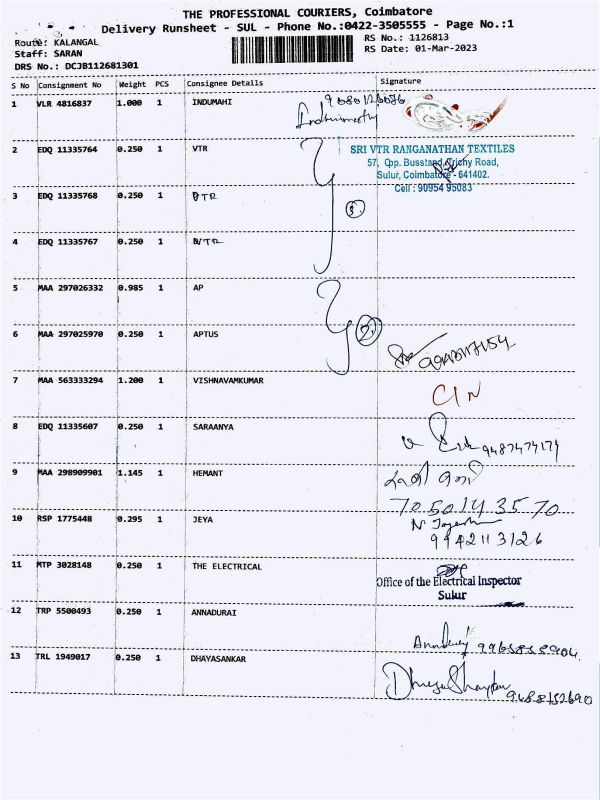 THE PROFESSIONAL COURIERS, Coimbatore
Delivery Runsheet - SUL - Phone No.:0422-3505555 - Page No.:1
Route: KALANGAL
RS No.: 1126813
Staff: SARAN
RS Date: 01-Mar-2023
DRS No.: DCJB112681301
S No Consignment No Weight PCS Consignee Details Signature
1 VLR 4816837 1.000 1 INDUMAHI
2 EDQ 11335764 0.250 1 VTR
SRI VTR RANGANATHAN TEXTILES
57, Opp. Busstand, Trichy Road,
Sulur, Coimbatore - 641402.
Cell : 90954 95083
3 EDQ 11335768 0.250 1 VTR
3.
4 EDQ 11335767 0.250 1 VTR
5 MAA 297026332 0.985 1 AP
2.
6 MAA 297025970 0.250 1 APTUS
7 MAA 563333294 1.200 1 VISHNAVAMKUMAR
C/N
8 EDQ 11335607 0.250 1 SARAANYA
9487474174
9 MAA 298909901 1.145 1 HEMANT
70 5014 35 70
10 RSP 1775448 0.295 1 JEYA
9942113126
11 MTP 3028148 0.250 1 THE ELECTRICAL
Office of the Electrical Inspector
Sulur
12 TRP 5500493 0.250 1 ANNADURAI
13 TRL 1949017 0.250 1 DHAYASANKAR
9488152690